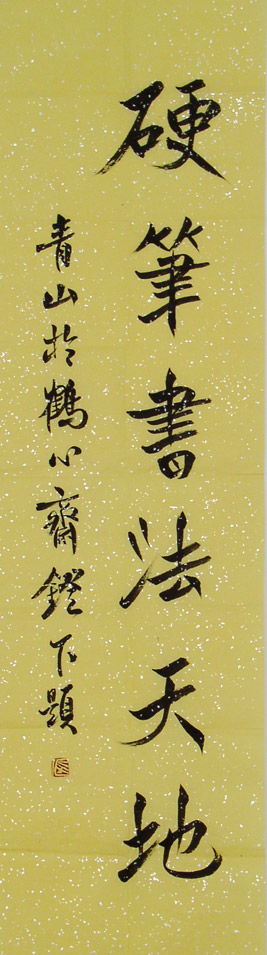 硬筆書法天地
青山於鶴心齋鐙下題